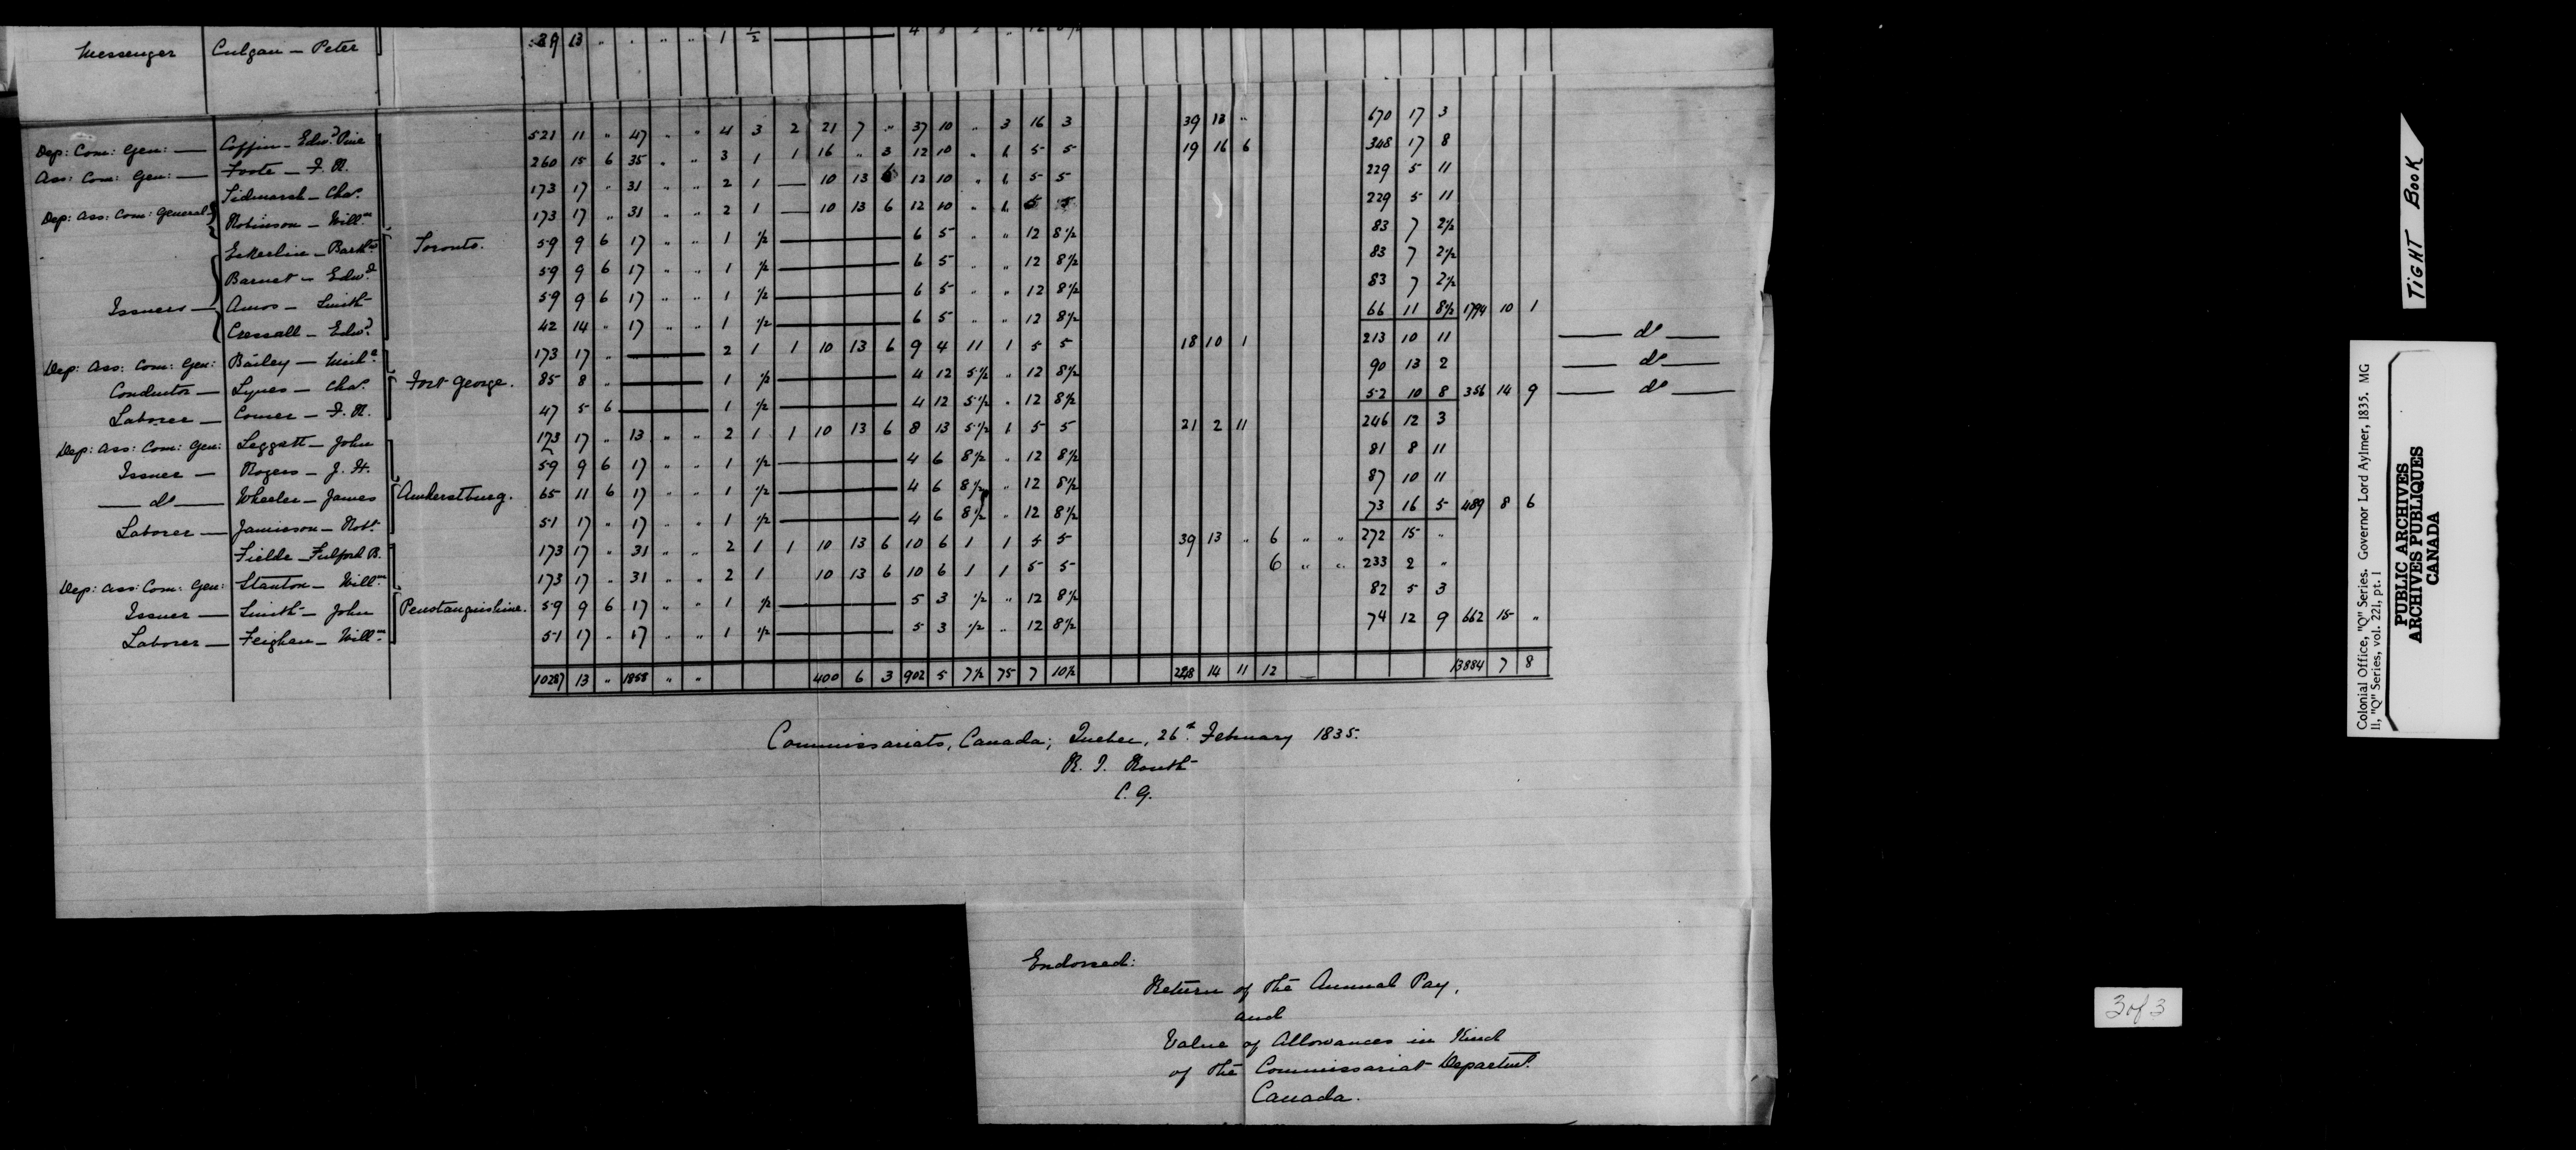 Messenger Culgan — Peter 39 13 " . " " 1 ½ —
Dep: Com: Gen: — Coffin — Edwd. Pine 521 11 " 47 " " 4 3 2 21 7 " 37 10 " 3 16 3 39 13 " 670 17 3
Ass: Com: Gen: — Foote — F. R. 260 15 6 35 " " 3 1 1 16 " 3 12 10 " 1 5 5 19 16 6 348 17 8
Dep: Ass: Com: General { Tidmarsh — Chas. 173 17 " 31 " " 2 1 — 10 13 6 12 10 " 1 5 5 229 5 11
Robinson — Willm. 173 17 " 31 " " 2 1 — 10 13 6 12 10 " 1 5 5 229 5 11
Toronto.
Issuers — { Eckerlin — Barthw. 59 9 6 17 " " 1 ½ — 6 5 " " 12 8½ 83 7 2½
Barnet — Edwd. 59 9 6 17 " " 1 ½ — 6 5 " " 12 8½ 83 7 2½
Amos — Smith 59 9 6 17 " " 1 ½ — 6 5 " " 12 8½ 83 7 2½
Cressall — Edwd. 42 14 " 17 " " 1 ½ — 6 5 " " 12 8½ 66 11 8½ 1794 10 1
Dep: Ass: Com: Gen: Bailey — Michl. 173 17 " — 2 1 1 10 13 6 9 4 11 1 5 5 18 10 1 213 10 11 — do —
Conductor — Lynes — Chas. Fort George. 85 8 " — 1 ½ — 4 12 5½ " 12 8½ 90 13 2 — do —
Laborer — Comer — F. R. 47 5 6 — 1 ½ — 4 12 5½ " 12 8½ 52 10 8 356 14 9 — do —
Dep: Ass: Com: Gen: Leggatt — John 173 17 " 13 " " 2 1 1 10 13 6 8 13 5½ 1 5 5 21 2 11 246 12 3
Issuer — Rogers — J. H. 59 9 6 17 " " 1 ½ — 4 6 8½ " 12 8½ 81 8 11
— do — Wheeler — James Amherstburg. 65 11 6 17 " " 1 ½ — 4 6 8½ " 12 8½ 87 10 11
Laborer — Jamieson — Robt. 51 17 " 17 " " 1 ½ — 4 6 8½ " 12 8½ 73 16 5 489 8 6
Fielde — Fulford B. 173 17 " 31 " " 2 1 1 10 13 6 10 6 1 1 5 5 39 13 " 6 " " 272 15 "
Dep: Ass: Com: Gen: Stanton — Willm. 173 17 " 31 " " 2 1 10 13 6 10 6 1 1 5 5 6 " " 233 2 "
Issuer — Smith — John Penetanguishine. 59 9 6 17 " " 1 ½ — 5 3 ½ " 12 8½ 82 5 3
Laborer — Feighan — Willm. 51 17 " 17 " " 1 ½ — 5 3 ½ " 12 8½ 74 12 9 662 15 "
10287 13 " 1858 " " 400 6 3 902 5 7½ 75 7 10½ 228 14 11 12 — 13884 7 8
Commissariats, Canada; Quebec, 26th February 1835.
R. I. Routh
C. G.
Endorsed:
Return of the Annual Pay,
and
Value of Allowances in Kind
of the Commissariat Departmt.
Canada.
TIGHT BOOK
Colonial Office, "Q" Series. Governor Lord Aylmer, 1835. MG
11, "Q" Series, vol. 221, pt. 1
PUBLIC ARCHIVES
ARCHIVES PUBLIQUES
CANADA
3 of 3